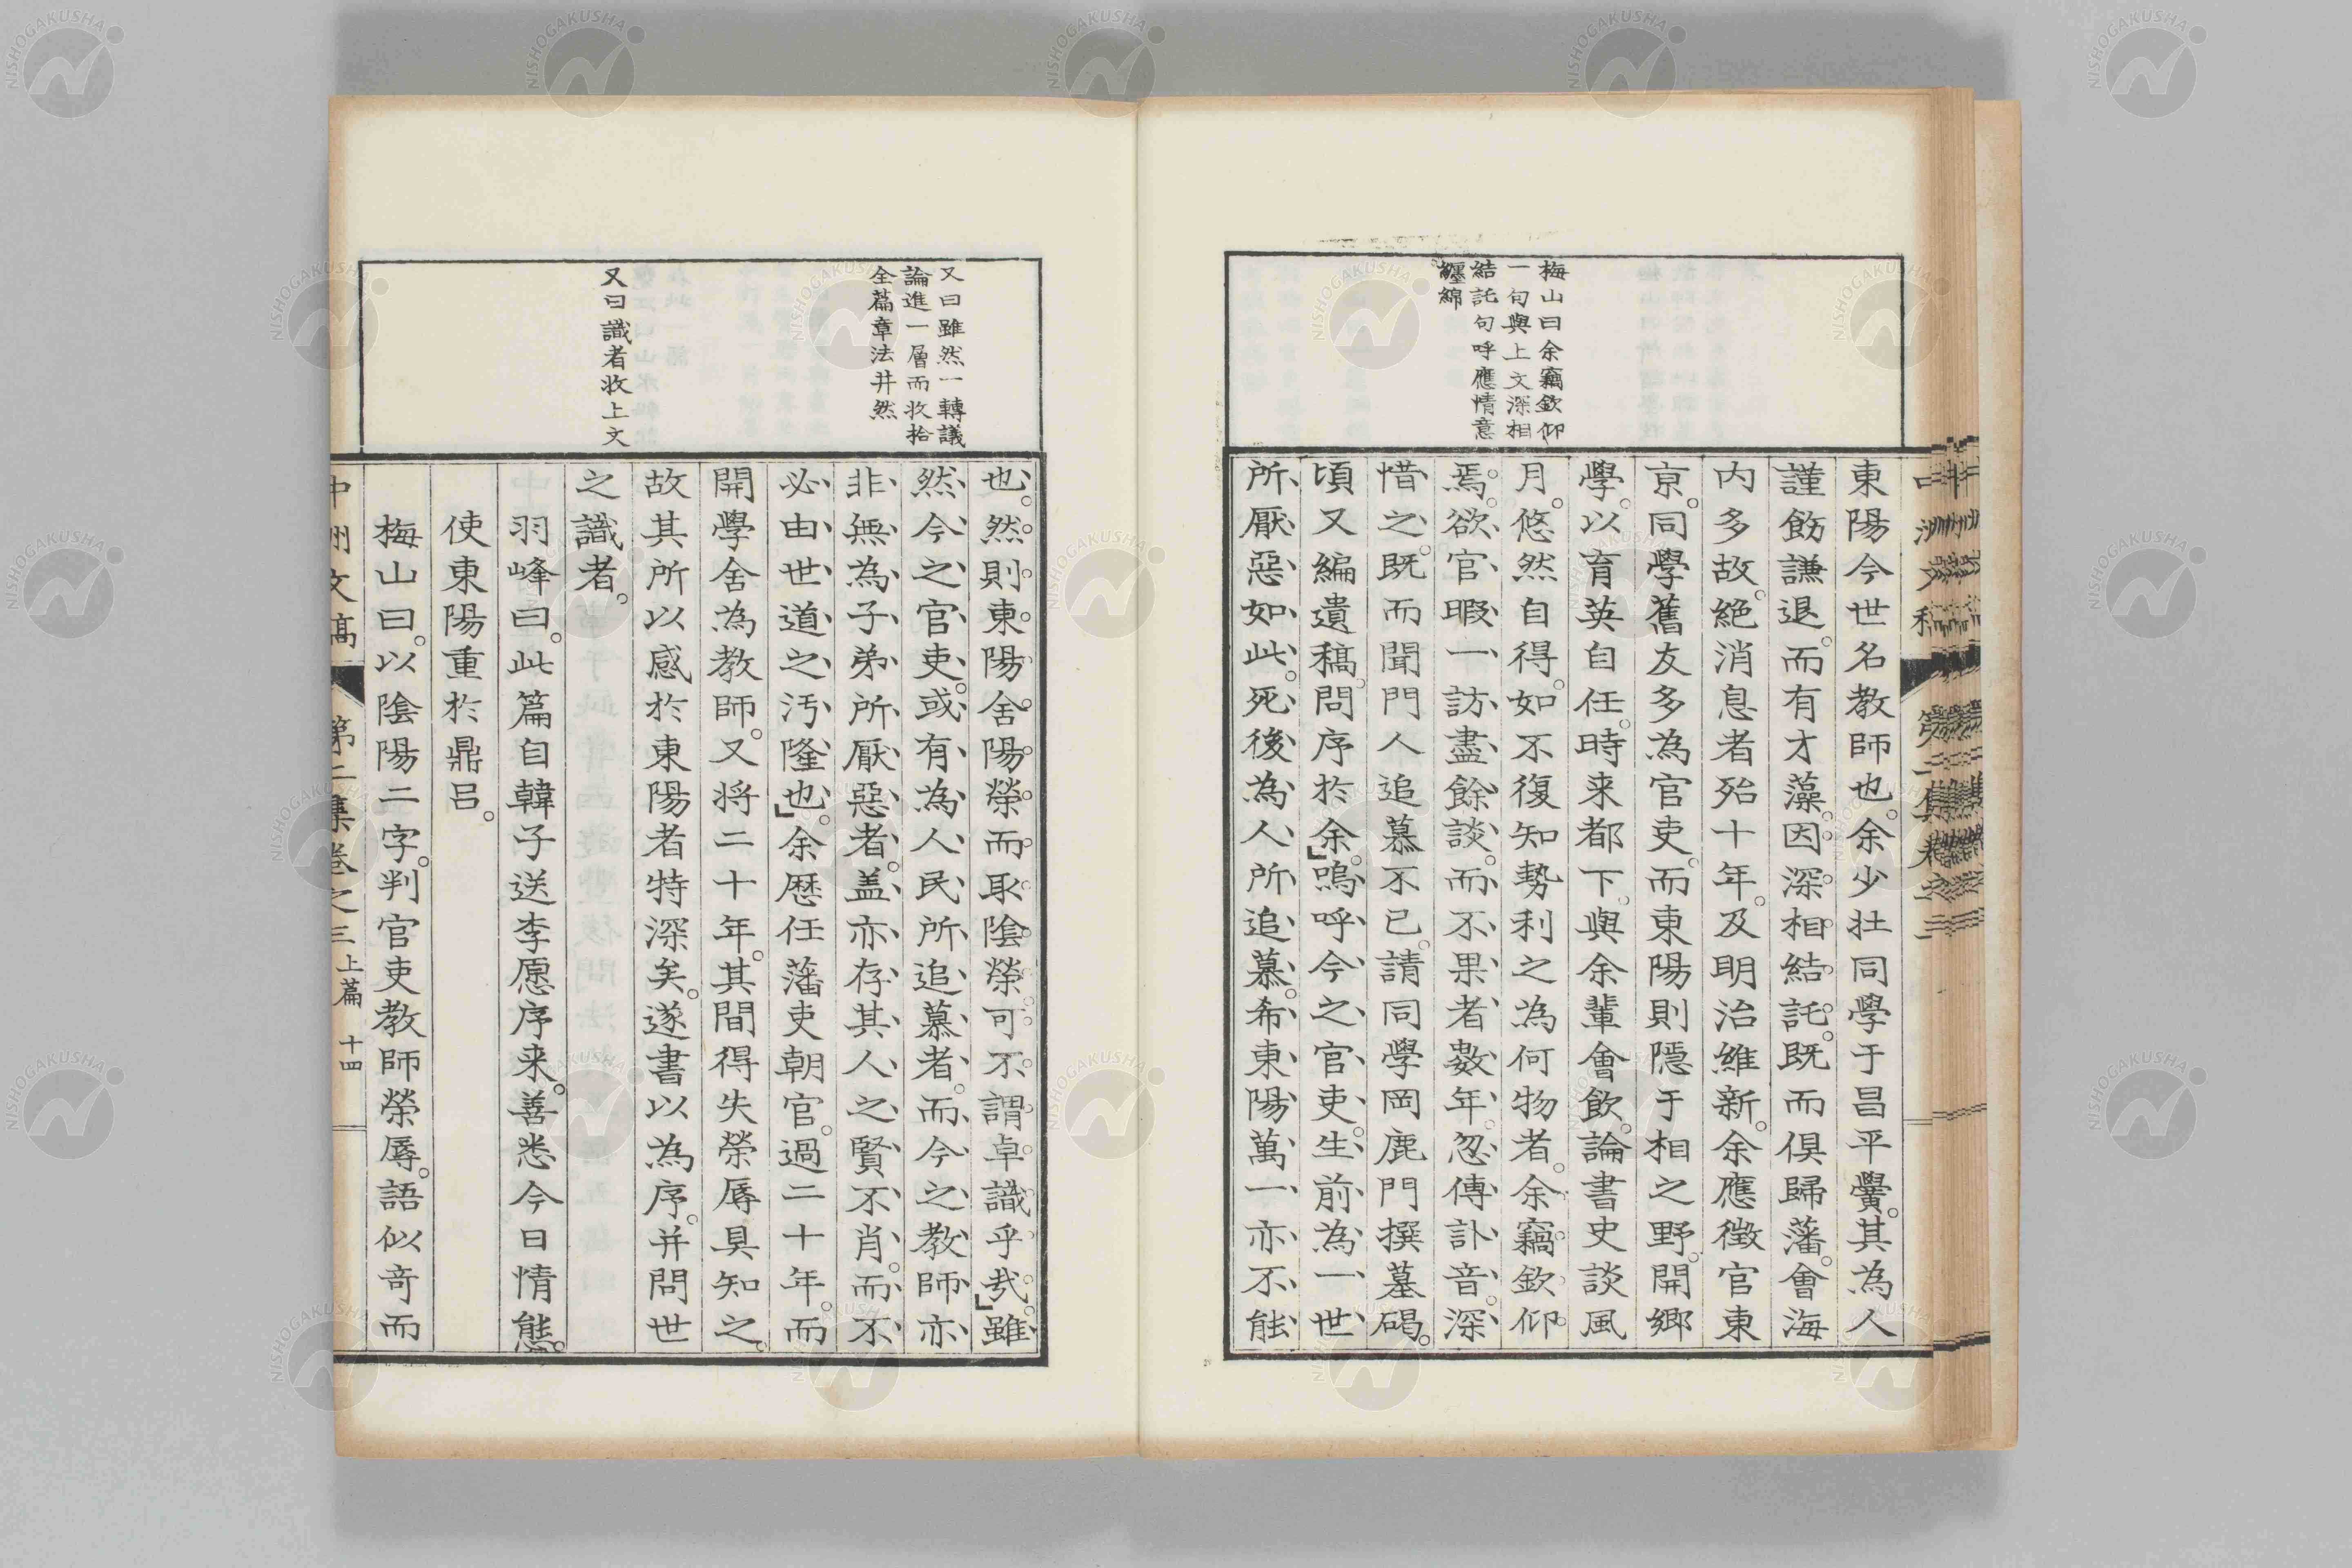 梅山曰余竊欽仰
一句與上文深相
結託句呼應情意
纏綿
東陽今世名教師也。余少壯同學于昌平黌。其為人
謹飭謙退。而有才藻。因深相結託。既而俱歸藩。會海
内多故。絶消息者殆十年。及明治維新。余應徵官東
京。同學舊友多為官吏。而東陽則隱于相之野。開鄉
學。以育英自任。時来都下。與余輩會飲。論書史談風
月。悠然自得。如不復知勢利之為何物者。余竊欽仰
焉。欲官暇一訪盡餘談。而不果者數年。忽傳訃音。深
惜之。既而聞門人追慕不已。請同學岡鹿門撰墓碣。
頃又編遺稿。問序於余。」嗚呼今之官吏。生前為一世
所厭惡如此。死後為人所追慕。希東陽萬一亦不能
又曰雖然一轉議
論進一層而收拾
全篇章法井然
又曰識者收上文
也。然則東陽舍陽榮而取陰榮。可不謂卓識乎哉。」雖
然今之官吏。或有為人民所追慕者。而今之教師亦
非無為子弟所厭惡者。盖亦存其人之賢不肖。而不
必由世道之汚隆也。」余歷任藩吏朝官。過二十年。而
開學舍為教師。又将二十年。其間得失榮辱具知之。
故其所以感於東陽者特深矣。遂書以為序。并問世
之識者。
羽峰曰。此篇自韓子送李愿序来。善悉今日情態。
使東陽重於鼎呂。
梅山曰。以陰陽二字。判官吏教師榮辱。語似奇而
中州文稿 第二集卷之三 上篇 十四